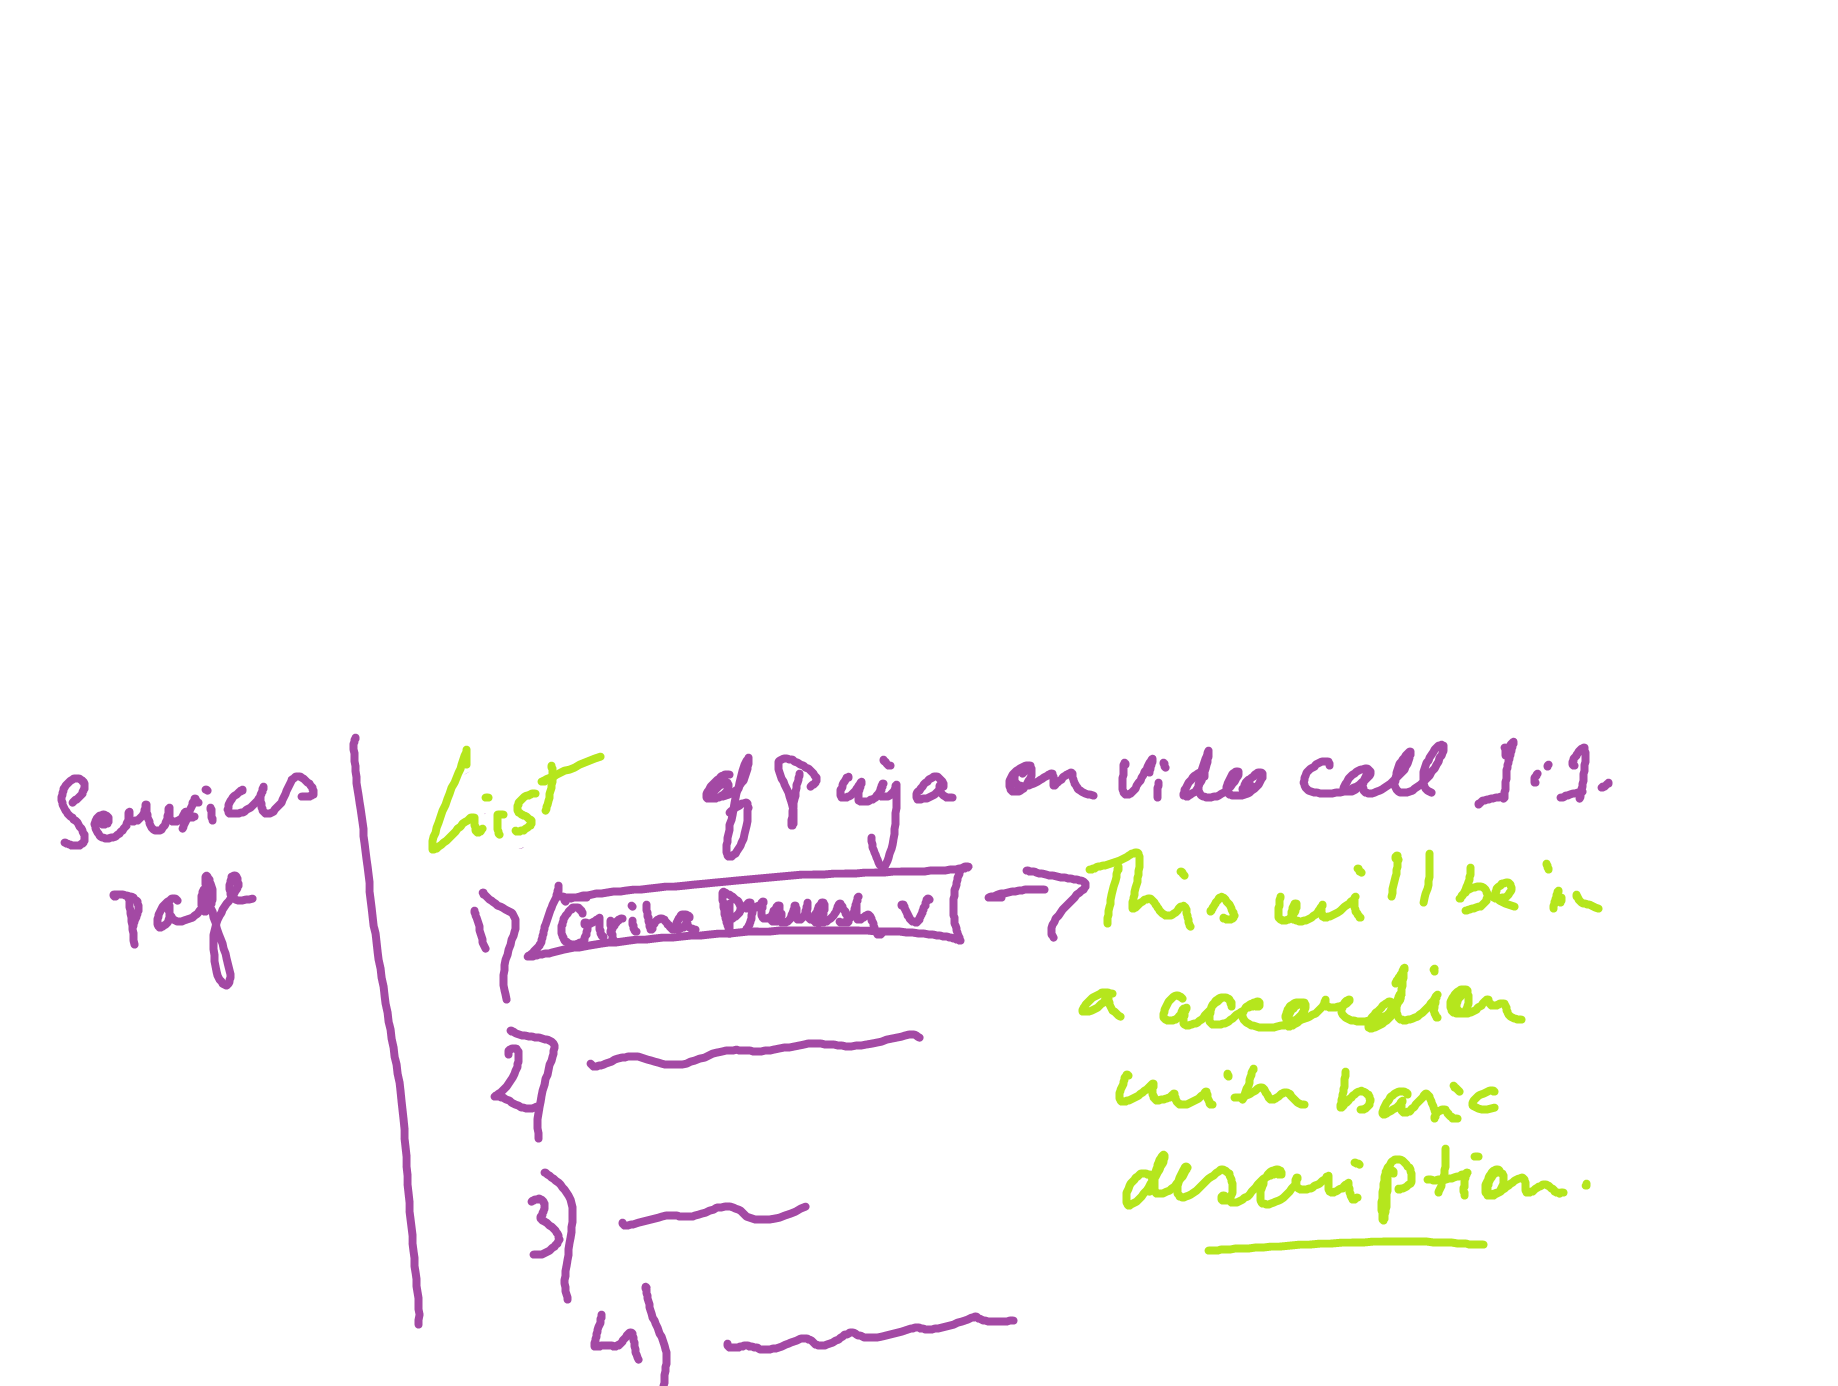 Services page
List of Puja on video call 1:1.
1) Griha Pravesh v → This will be in
a accordion
with basic
description.
2)
3)
4)